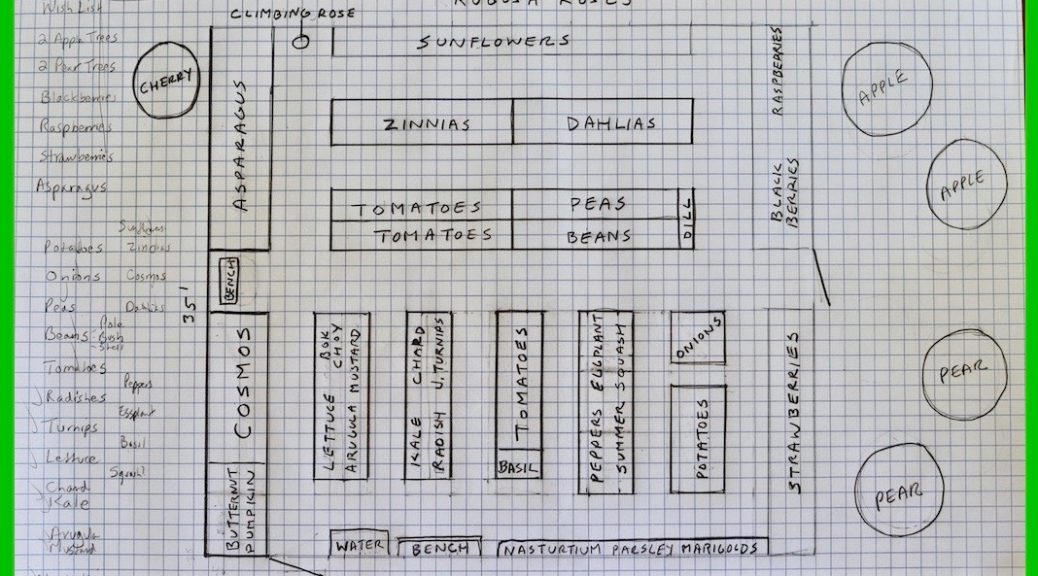 Wish List
2 Apple Trees
2 Pear Trees
Blackberries
Raspberries
Strawberries
Asparagus
Potatoes
Onions
Peas
Beans - Pole
- Bush
Tomatoes
Radishes
Turnips
Lettuce
Chard
Kale
Arugula
Mustard
Zinnias
Cosmos
Dahlias
Peppers
Basil
Squash
35'
CLIMBING ROSE
CHERRY
ASPARAGUS
BENCH
COSMOS
BUTTERNUT
PUMPKIN
SUNFLOWERS
ZINNIAS
DAHLIAS
TOMATOES
PEAS
TOMATOES
BEANS
DILL
RASPBERRIES
BLACK
BERRIES
APPLE
APPLE
LETTUCE BOK
CHOY
ARUGULA MUSTARD
KALE CHARD
RADISH J.TURNIPS
TOMATOES
BASIL
PEPPERS EGGPLANT
SUMMER SQUASH
ONIONS
POTATOES
STRAWBERRIES
PEAR
PEAR
WATER
BENCH
NASTURTIUM PARSLEY MARIGOLDS